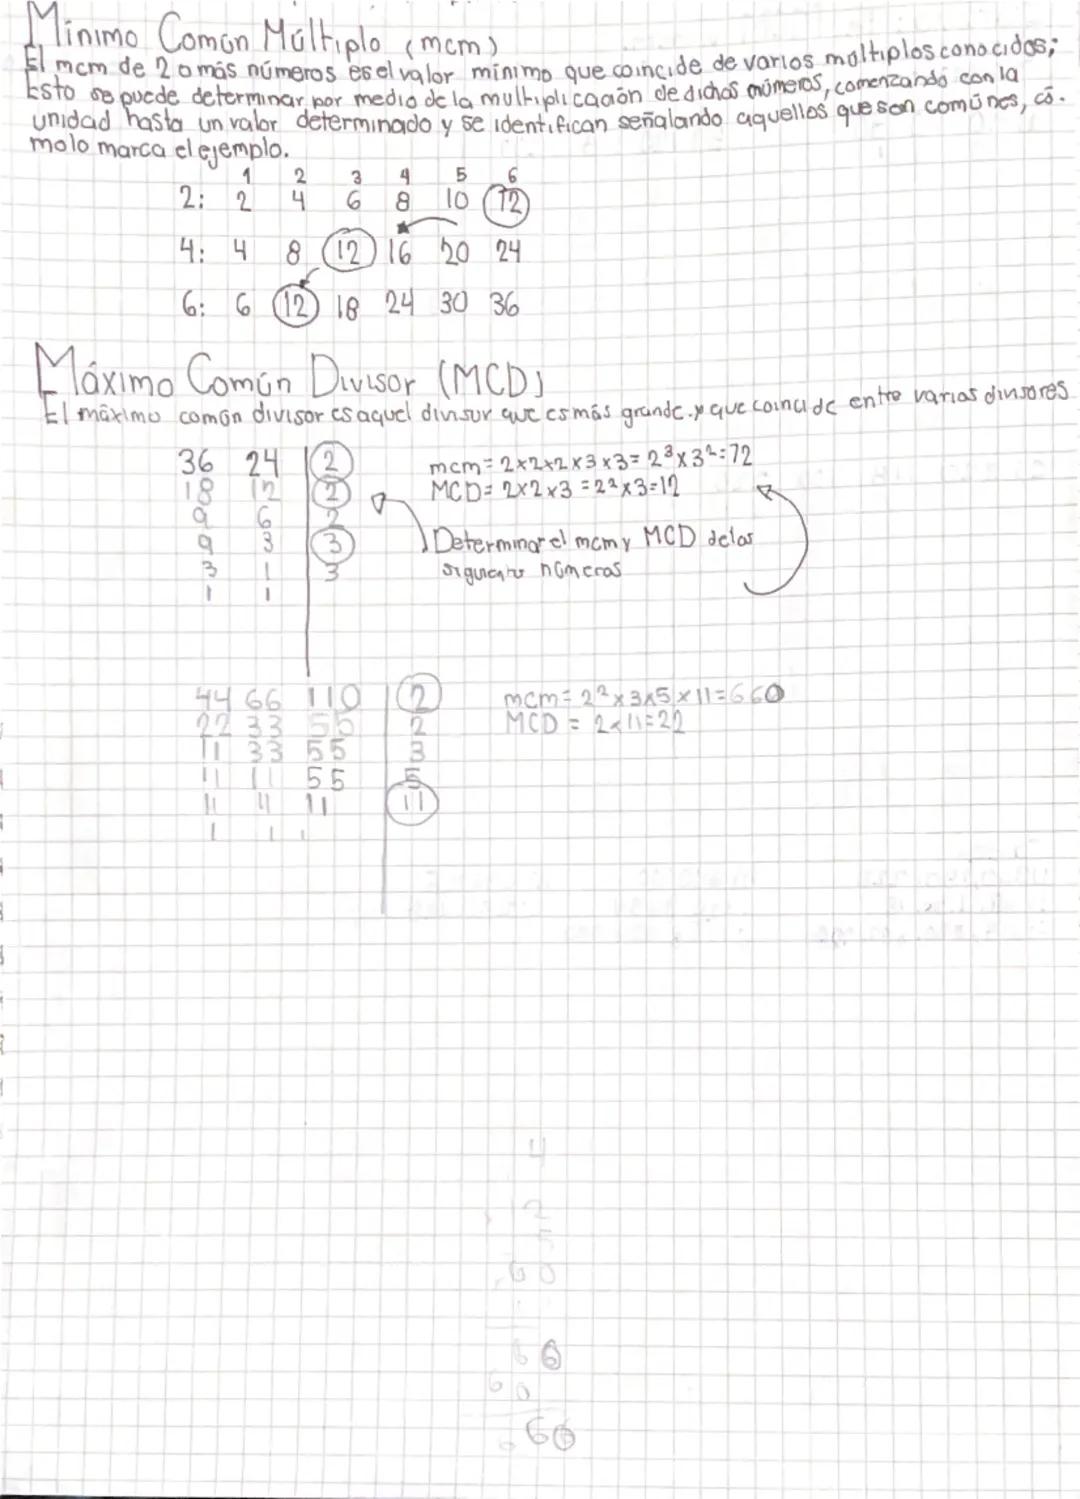 Mínimo Común Múltiplo (mcm)
El mcm de 2 o más números es el valor mínimo que coincide de varios multiplos conocidos;
Esto se puede determinar por medio de la multiplicación de dichos números, comenzando con la
unidad hasta un valor determinado y se identifican señalando aquellos que son comúnes, co-
mo lo marca el ejemplo.
1 2 3 4 5 6
2: 2 4 6 8 10 12
4: 4 8 12 16 20 24
6: 6 12 18 24 30 36
Máximo Común Divisor (MCD)
El máximo común divisor es aquel divisor que es más grande y que coincide entre varias divisores
36 24 | 2 mcm= 2x2x2x3x3= 2³x3²=72
18 12 | 2 MCD= 2x2x3 =2²x3=12
9 6 | 2
9 3 | 3 Determinar el mcm y MCD de las
3 1 | 3 siguiente números
1 1
44 66 110 | 2 mcm= 2²x3x5x11=660
22 33 55 | 2 MCD = 2x11=22
11 33 55 | 3
11 11 55 | 5
11 11 11 | 11
1 1 1
4
12
5
60
66
60
660